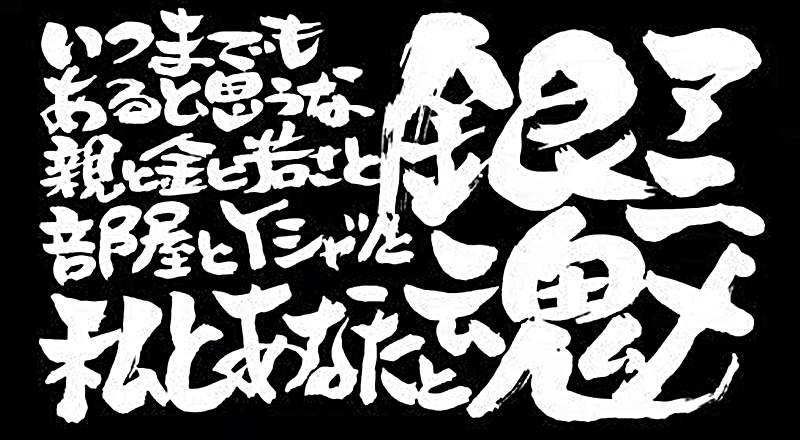 いつまでも
あると思うな
親と金と若さと
部屋とYシャツと
私とあなたと
銀魂
アニメ